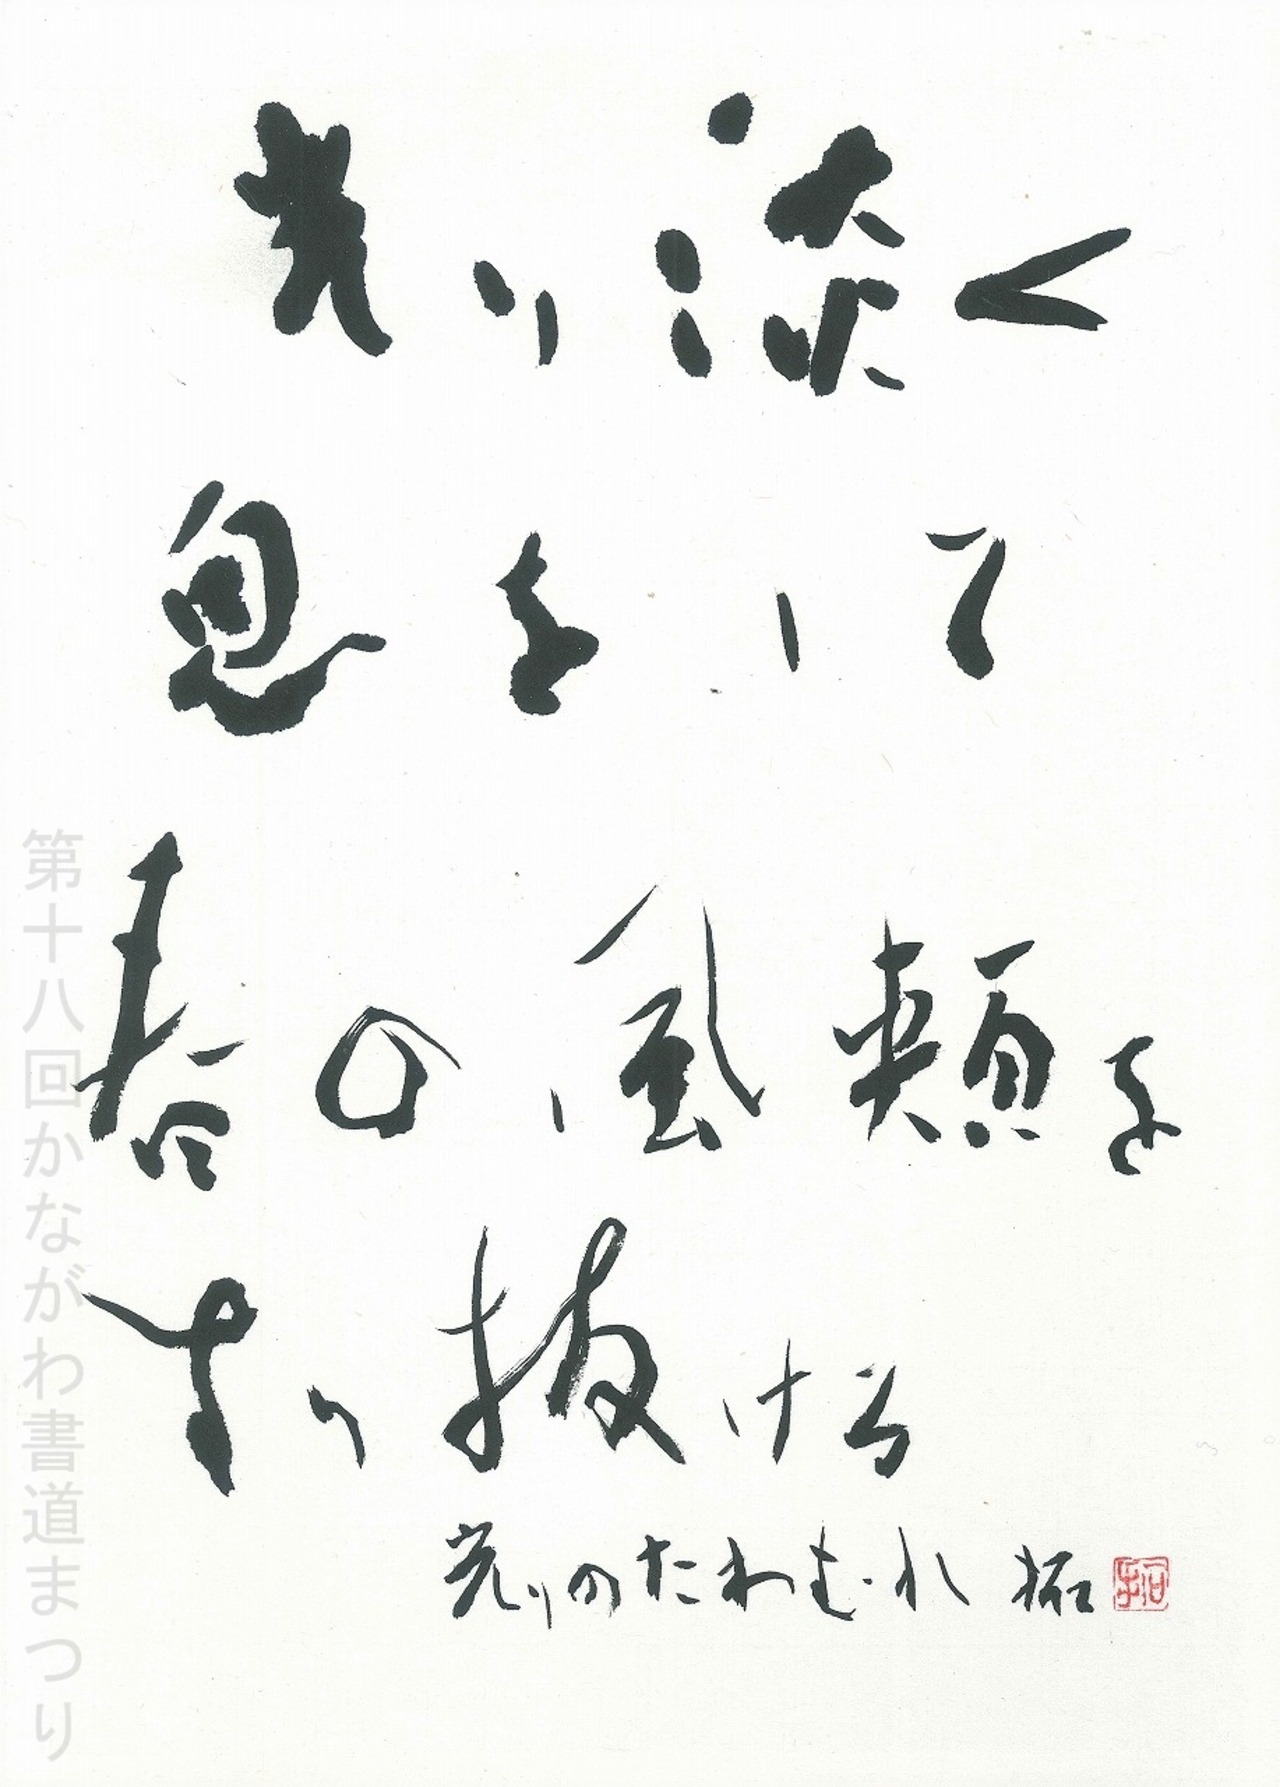 光り淡く
息をして
春の風頬を
すり抜ける
光りのたわむれ 拓 拓
第十八回かながわ書道まつり